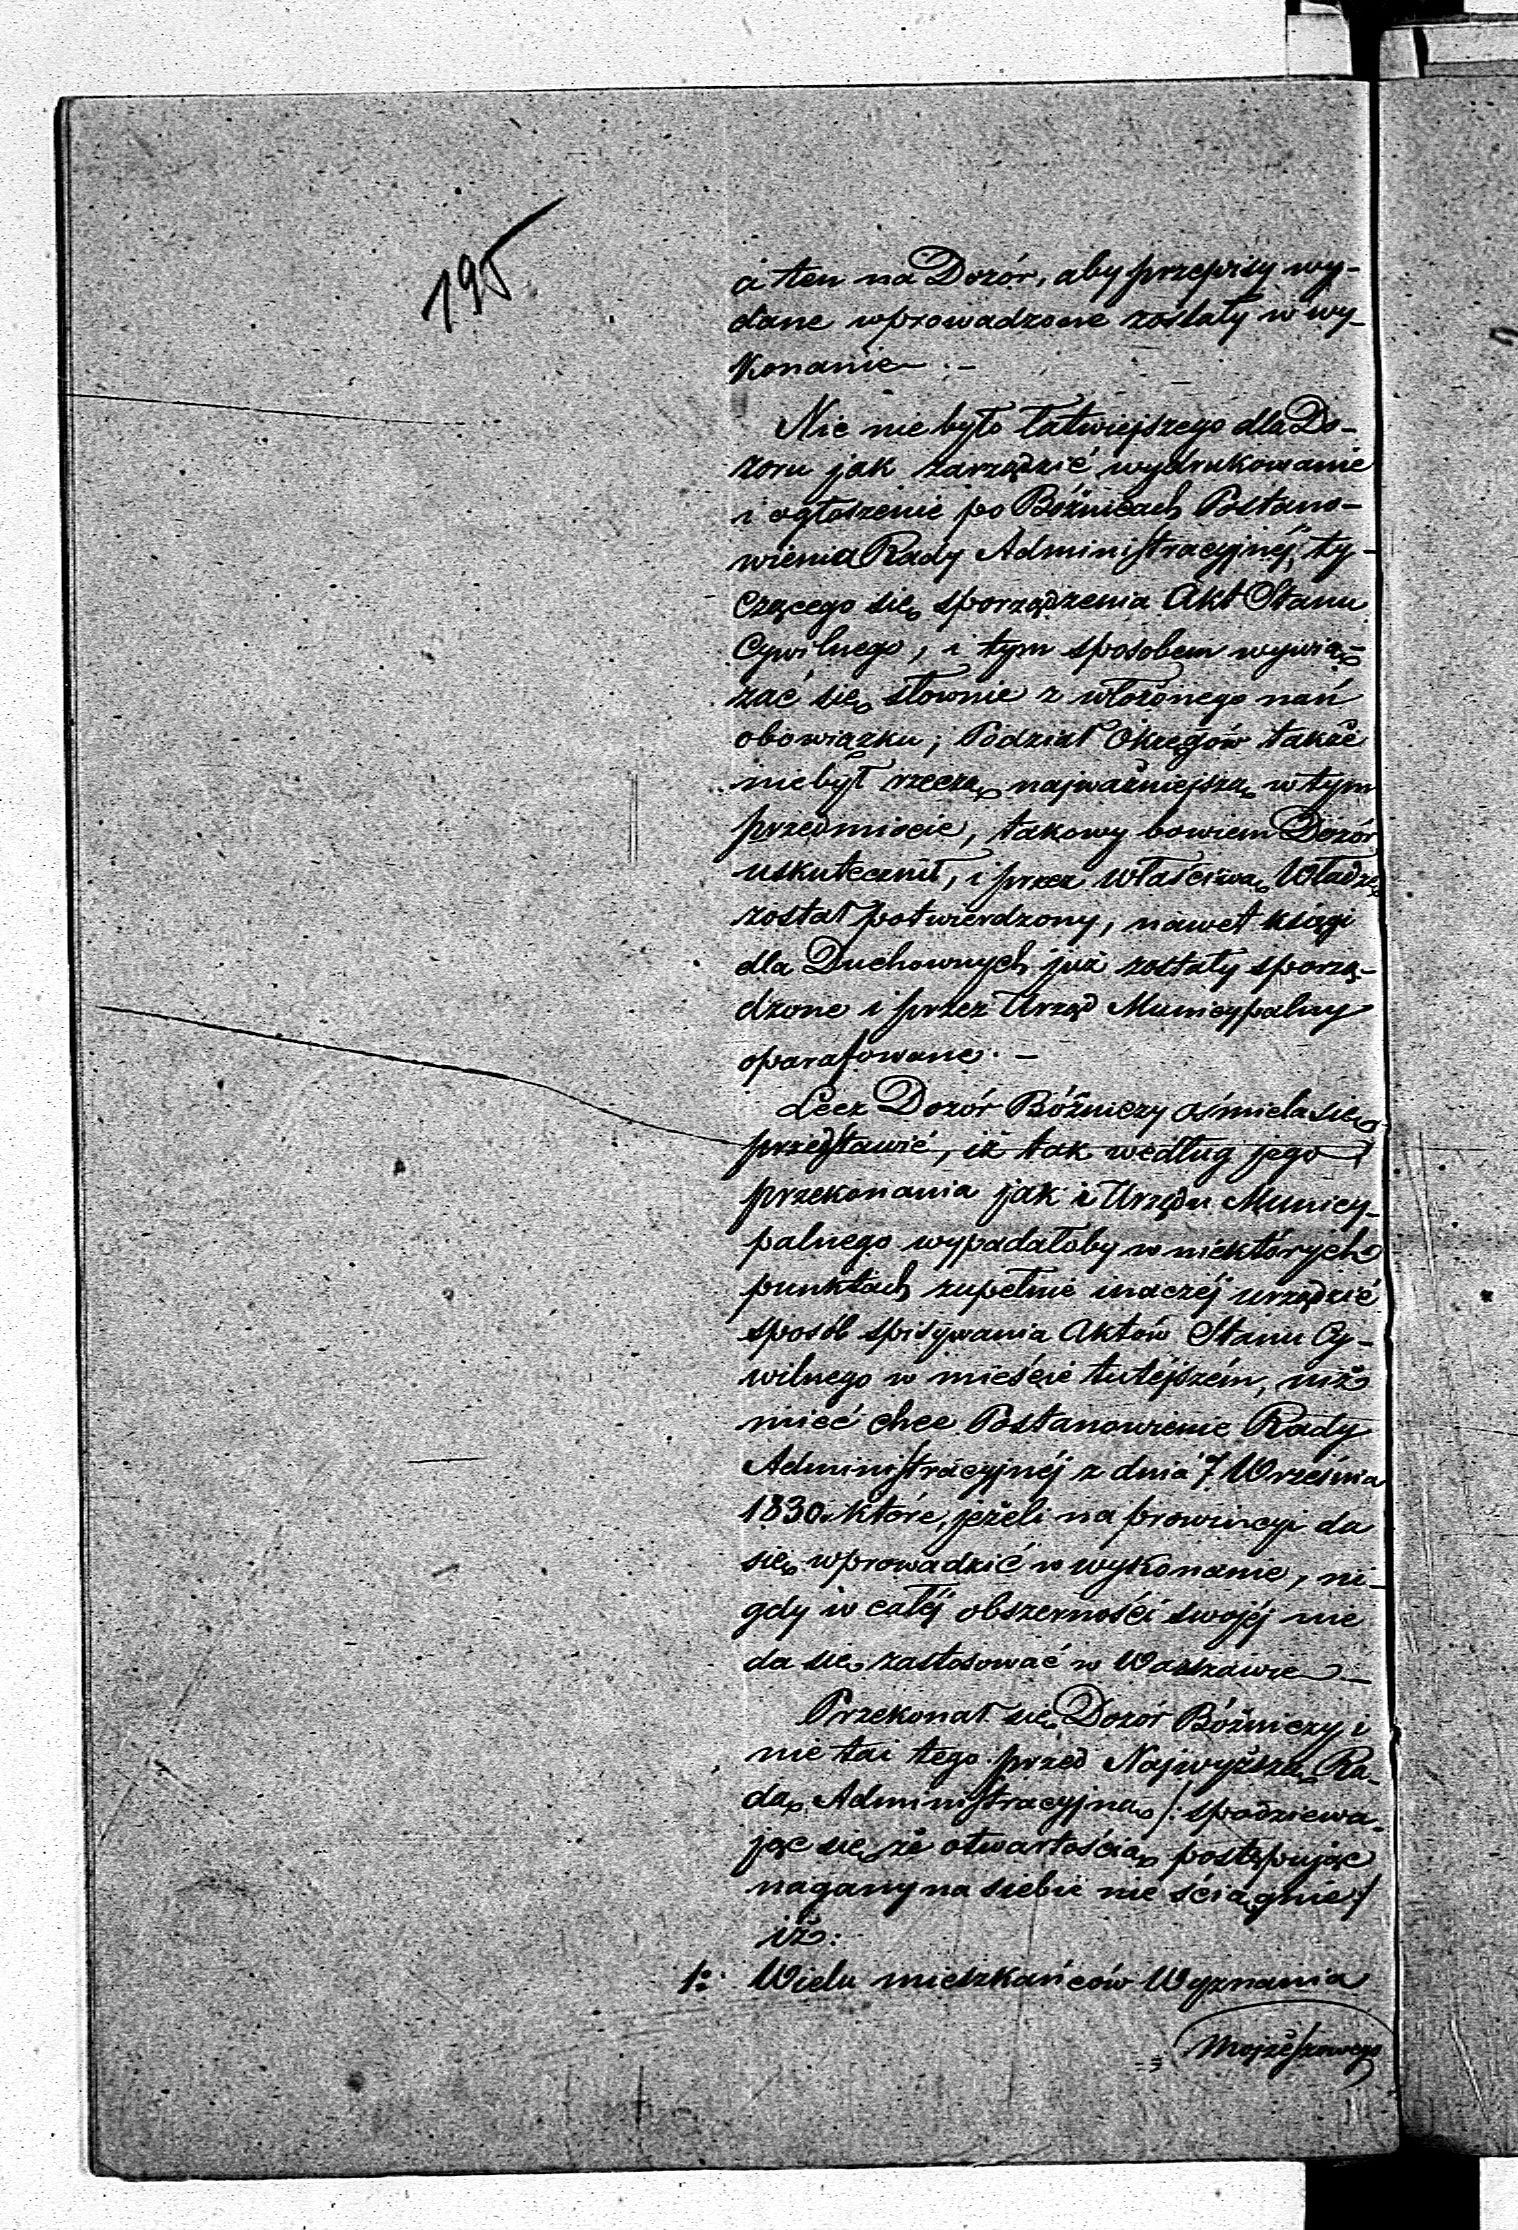 195
a ten na Dozór, aby przepisy wy-
dane wprowadzone zostały w wy-
konanie. —
Nic nie było łatwiejszego dla Do-
zoru jak zarządzić wydrukowanie
i ogłoszenie po Bóżnicach Postano-
wienia Rady Administracyjnéj, ty-
czącego się sporządzenia Akt Stanu
Cywilnego, i tym sposobem wywią-
zać się słownie z włożonego nań
obowiązku; Podział Okręgów także
niebył rzeczą najważniejszą w tym
przedmiocie, takowy bowiem Dozór
uskutecznił, i przez właściwą Władzę
został potwierdzony, nawet księgi
dla Duchownych już zostały sporzą-
dzone i przez Urząd Municypalny
oparafowane. —
Lecz Dozór Bóżniczy ośmiela się
przedstawić, iż tak według jego
przekonania jak i Urzędu Municy-
palnego wypadałoby w niektórych
punktach zupełnie inaczéj urządzić
sposób spisywania Aktów Stanu Cy-
wilnego w mieście tutéjszém, niż
mieć chce Postanowienie Rady
Administracyjnéj z dnia 7 Września
1830. które, jeżeli na prowincyi da
się wprowadzić w wykonanie, ni-
gdy w całéj obszerności swojéj nie
da się zastosować w Warszawie —
Przekonał się Dozór Bóżniczy i
nie tai tego przed Najwyższą Ra-
dą Administracyjną /: spodziewa-
jąc się że otwartością postępując
nagany na siebie nie ściągnie :/
iż:
1: Wielu mieszkańców Wyznania
Mojżeszowego